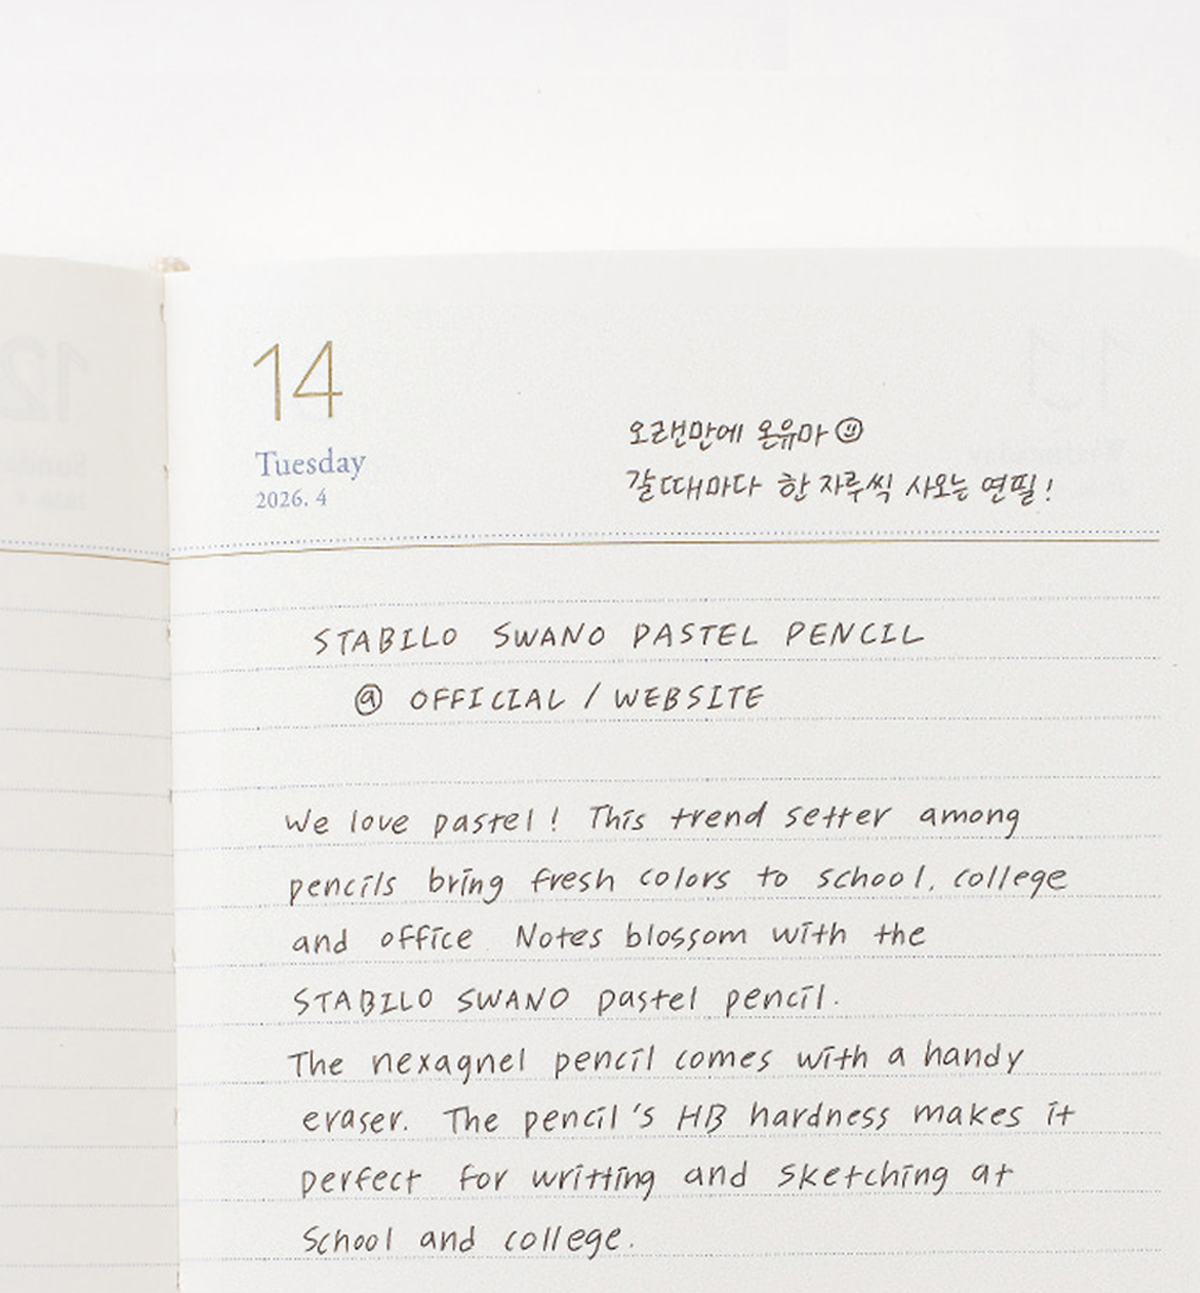 14
Tuesday
2026. 4
오랜만에 온유마
갈때마다 한 자루씩 사오는 연필!
STABILO SWANO PASTEL PENCIL
@ OFFICIAL / WEBSITE
We love pastel! This trend setter among
pencils bring fresh colors to school, college
and office Notes blossom with the
STABILO SWANO pastel pencil.
The nexagnel pencil comes with a handy
eraser. The pencil's HB hardness makes it
perfect for writting and sketching at
School and college.